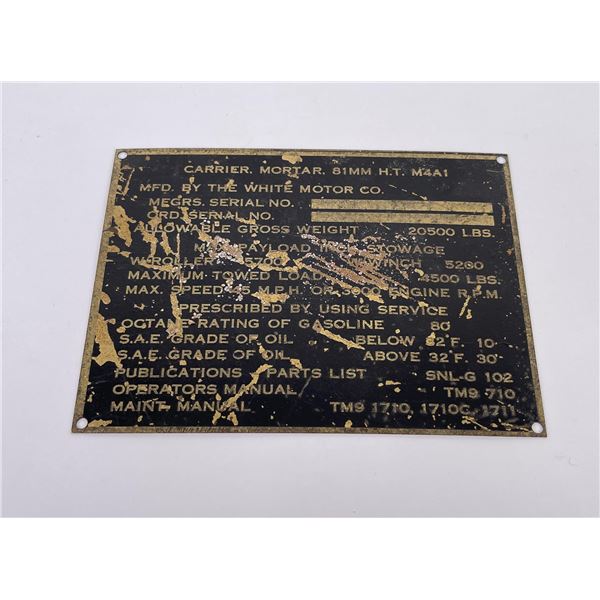 CARRIER, MORTAR, 81MM H.T. M4A1
MFD. BY THE WHITE MOTOR CO.
MFGRS. SERIAL NO.
ORD. SERIAL NO.
ALLOWABLE GROSS WEIGHT 20500 LBS.
MAX. PAYLOAD INCL. STOWAGE
W/ROLLER 5700 W/WINCH 5200
MAXIMUM TOWED LOAD 4500 LBS.
MAX. SPEED 45 M.P.H. OR 3000 ENGINE R.P.M.
PRESCRIBED BY USING SERVICE
OCTANE RATING OF GASOLINE 80
S.A.E. GRADE OF OIL BELOW 32°F. 10
S.A.E. GRADE OF OIL ABOVE 32°F. 30
PUBLICATIONS PARTS LIST SNL-G 102
OPERATORS MANUAL TM9 710
MAINT. MANUAL TM9 1710, 1710C, 1711